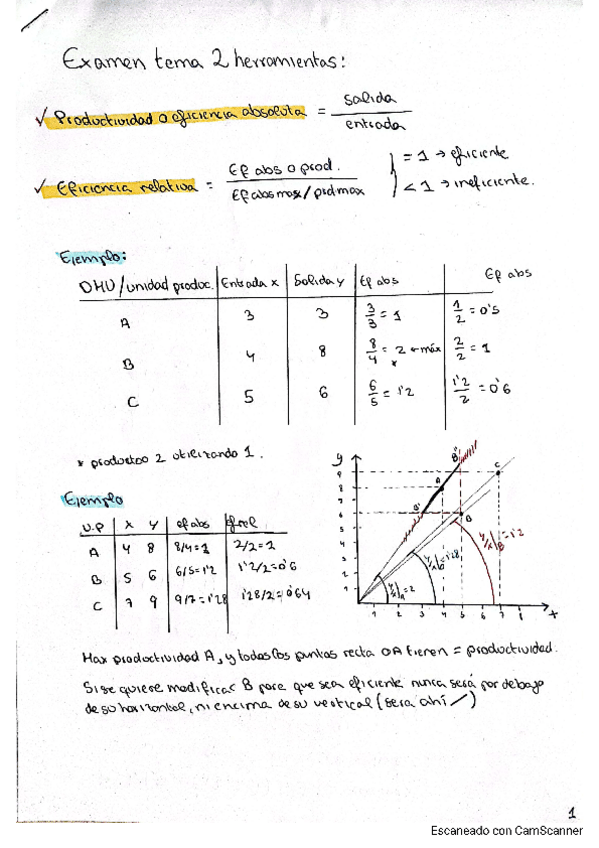 Examen tema 2 herramientas:
✓ Productividad o eficiencia absoluta = salida / entrada
✓ Eficiencia relativa = Ef abs o prod. / Ef abs max / prd max } = 1 → eficiente
< 1 → ineficiente.
Ejemplo:
DMU / unidad produc. Entrada x Salida y Ef abs Ef abs
A 3 3 3/3 = 1 1/2 = 0'5
B 4 8 8/4 = 2 ← máx 2/2 = 1
*
C 5 6 6/5 = 1'2 1'2/2 = 0'6
* productoo 2 utilizando 1.
Ejemplo
U.P X Y ef abs ef rel
A 4 8 8/4=2 2/2=1
B 5 6 6/5=1'2 1'2/2=0'6
C 7 9 9/7=1'28 1'28/2=0'64
y
9
8
7
6
5
4
3
2
1
1 2 3 4 5 6 7 8 x
A
B
C
B'
B''
y/x|A = 2
y/x|C = 1'28
y/x|B = 1'2
Max productividad A, y todos los puntos recta OA tienen = productividad.
Si se quiere modificar B para que sea eficiente nunca será por debajo
de su horizontal, ni encima de su vertical (sera ahí /)
1
Escaneado con CamScanner